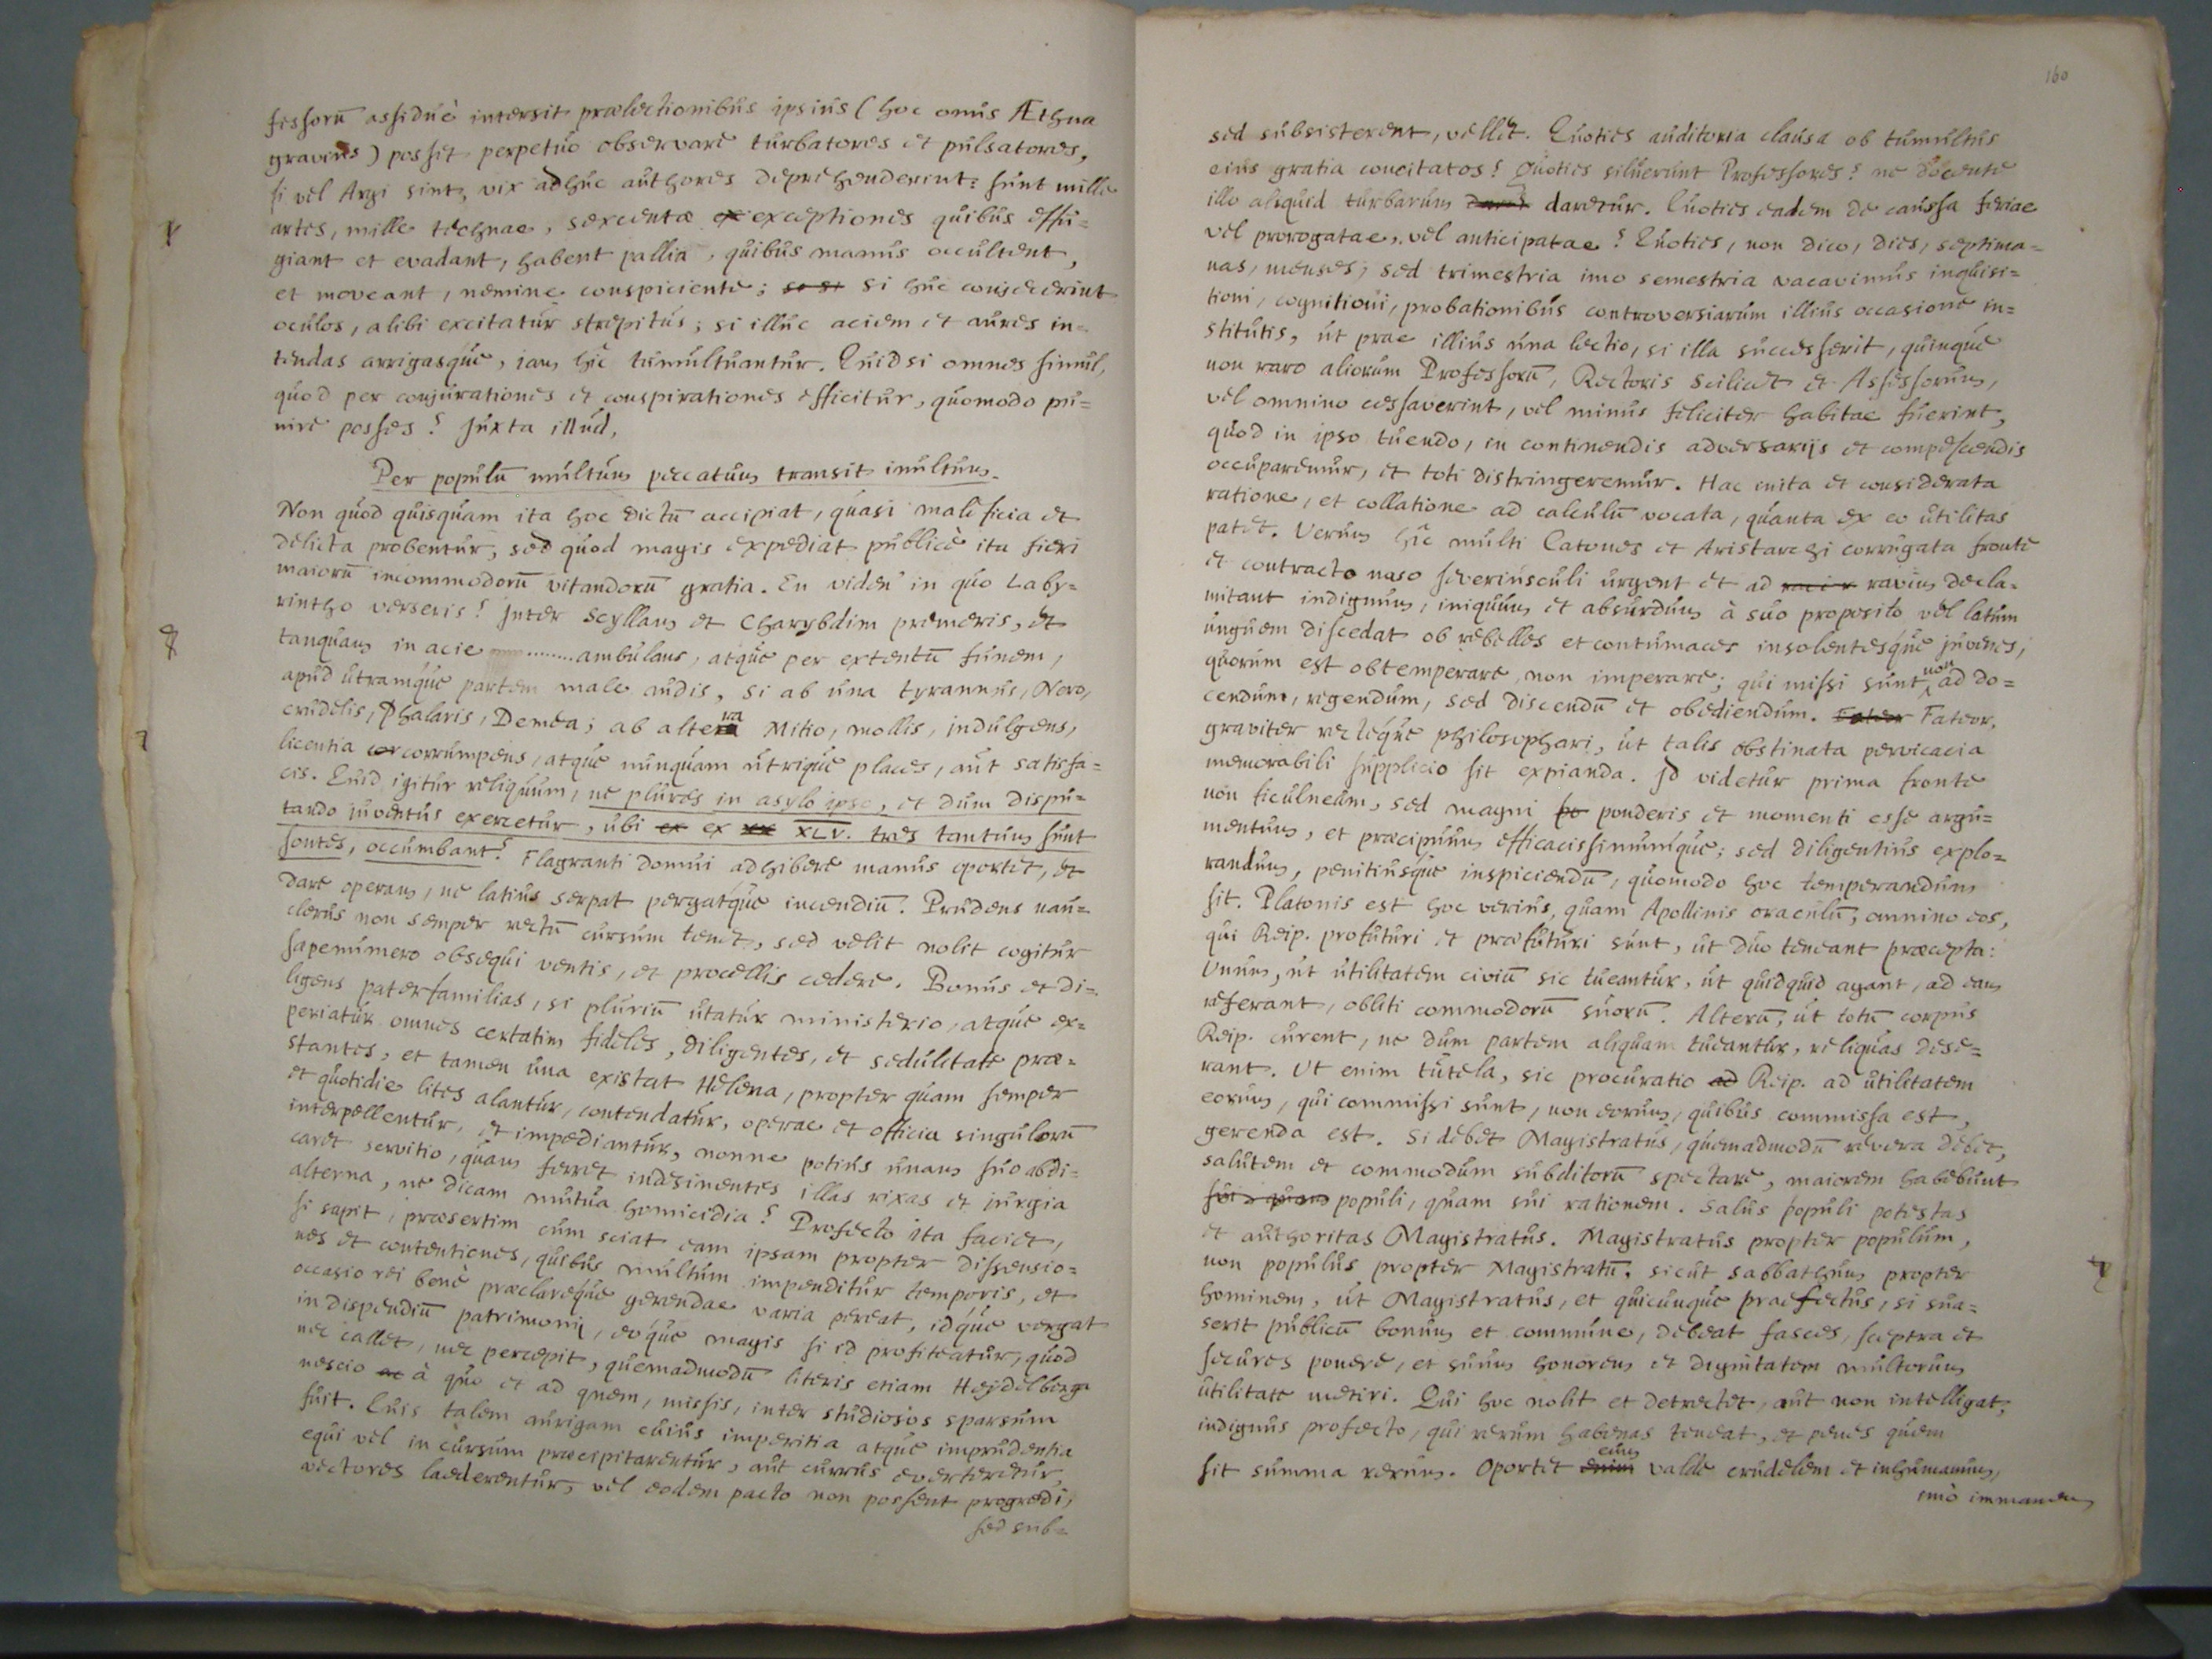 fessorū assiduè intersit praelectionibus ipsius (hoc onus Æthna
gravius) possit perpetuo observare turbatores et pulsatores,
si vel Argi sint, vix adhuc authores deprehenderint: sunt mille
artes, mille technae, sexcentae ex exceptiones quibus effu=
giant et evadant, habent pallia, quibus manus occultent,
et moveant, nemine conspiciente; se si si huc conjecerint
oculos, alibi excitatur strepitus; si illuc aciem et aures in=
tendas arrigasque, iam hîc tumultuantur. Quid si omnes simul,
quod per conjurationes et conspirationes efficitur, quomodo pu=
nire posses? Juxta illud,
Per populū multum peccatum transit inultum.
Non quod quisquam ita hoc dictū accipiat, quasi maleficia et
delicta probentur, sed quod magis expediat publicè ita fieri
maiorū incommodorū vitandorū gratia. En viden' in quo Laby=
rintho verseris? Inter Scyllam et Charybdim premeris, et
tanquam in acie ........ ambulans, atque per extentū funem,
apud utramque partem male audis, si ab una tyrannus, Nero,
crudelis, Phalaris, Demea; ab altera ra Mitio, mollis, indulgens,
licentia cor corrumpens, atque nunquam utrique places, aut satisfa=
cis. Quid igitur reliquum, ne plures in asylo ipso, et dum dispu=
tando juventus exercetur, ubi ex ex xx XLV. tres tantum sunt
sontes, occumbant? Flagranti domui adhibere manus oportet, et
dare operam, ne latius serpat pergatque incendiū. Prudens nau=
clerus non semper rectū cursum tenet, sed velit nolit cogitur
saepenumero obsequi ventis, et procellis cedere. Bonus et di=
ligens paterfamilias, si pluriū utatur ministerio, atque ex=
periatur omnes certatim fideles, diligentes, et sedulitate prae=
stantes, et tamen una existat Helena, propter quam semper
et quotidie lites alantur, contendatur, operae et officia singulorū
interpellentur, et impediantur, nonne potius unam suo abdi=
caret servitio, quam ferret indesinentes illas rixas et jurgia
alterna, ne dicam mutua homicidia? Profecto ita faciet,
si sapit, praesertim cum sciat eam ipsam propter dissensio=
nes et contentiones, quibus multum impenditur temporis, et
occasio rei benè praeclareque gerendae varia pereat, idque vergat
in dispendiū patrimonij, eoque magis si id profiteatur, quod
nec callet, nec percepit, quemadmodū literis etiam Hejdelberga
nescio ac à quo et ad quem, missis, inter studiosos sparsum
fuit. Quis talem aurigam cuius imperitia atque imprudentia
equi vel in cursum praecipitarentur, aut currus everteretur,
vectores laederentur, vel eodem pacto non possent progredi,
sed sub=
160
sed subsisterent, vellet. Quoties auditoria clausa ob tumultus
eius gratia concitatos? Quoties siluerunt Professores? ne docente
illo aliquid turbarum daret daretur. Quoties eadem de caussa feriae
vel prorogatae, vel anticipatae? Quoties, non dico, dies, septima=
nas, menses, sed trimestria imo semestria vacavimus inquisi=
tioni, cognitioni, probationibus controversiarum illius occasione in=
stitutis, ut prae illius una lectio, si illa successerit, quinque
non raro aliorum Professorū, Rectoris scilicet et Assessorum,
vel omnino cessaverint, vel minus feliciter habitae fuerint,
quod in ipso tuendo, in continendis adversarijs et compescendis
occuparemur, et toti distringeremur. Hac inita et considerata
ratione, et collatione ad calculū vocata, quanta ex eo utilitas
patet. Verum hîc multi Catones et Aristarchi corrugata fronte
et contracto naso severiusculi urgent et ad raci x ravim decla=
mitant indignum, iniquum et absurdum à suo proposito vel latum
unguem discedat ob rebelles et contumaces insolentesque juvenes,
quorum est obtemperare, non imperare; qui missi sunt non ad do=
cendum, regendum, sed discendū et obediendum. Fateor Fateor,
graviter recteque philosophari, ut talis obstinata pervicacia
memorabili supplicio sit expianda. Id videtur prima fronte
non ficulneum, sed magni po ponderis et momenti esse argu=
mentum, et praecipuum efficacissimumque; sed diligentius explo=
randum, penitiusque inspiciendū, quomodo hoc temperandum
sit. Platonis est hoc verius, quam Apollinis oraculū, omnino eos,
qui Reip. profuturi et praefuturi sunt, ut duo teneant praecepta:
Unum, ut utilitatem civiū sic tueantur, ut quidquid agant, ad eam
referant, obliti commodorū suorū. Alterū, ut totū corpus
Reip. curent, ne dum partem aliquam tueantur, reliquas dese=
rant. Ut enim tutela, sic procuratio ad Reip. ad utilitatem
eorum, qui commissi sunt, non eorum, quibus commissa est,
gerenda est. Si debet Magistratus, quemadmodū revera debet,
salutem et commodum subditorū spectare, maiorem habebunt
sui quam populi, quam sui rationem. Salus populi potestas
et authoritas Magistratus. Magistratus propter populum,
non populus propter Magistratū, sicut sabbathum propter
hominem, ut Magistratus, et quicunque praefectus, si sua=
serit publicū bonum et commune, debeat fasces, sceptra et
secures ponere, et suum honorem et dignitatem multorum
utilitate metiri. Qui hoc nolit et detrectet, aut non intelligat,
indignus profecto, qui rerum habenas teneat, et penes quem
sit summa rerum. Oportet enim eum valde crudelem et inhumanum,
imò immanem